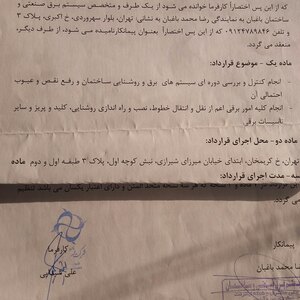 که از این پس اختصاراً کارفرما خوانده می شود از یک طرف و متخصص سیستم برق صنعتی و
ساختمان باغبان به نمایندگی رضا محمد باغبان به نشانی: تهران، بلوار سهروردی، خ اکبری، پلاک ۳
و تلفن ۰۹۱۲۴۷۸۹۸۴۶ که از این پس اختصاراً بعنوان پیمانکارنامیده می شود، از طرف دیگر،
منعقد می گردد.
ماده یک - موضوع قرارداد:
- انجام کنترل و بررسی دوره ای سیستم های برق و روشنایی ساختمان و رفع نقص و عیوب
احتمالی آن
- انجام کلیه امور برقی اعم از نقل و انتقال خطوط، نصب و راه اندازی روشنایی، کلید و پریز و سایر
تاسیسات برقی
ماده دو - محل اجرای قرارداد:
تهران، خ کریمخان، ابتدای خیابان میرزای شیرازی، نبش کوچه اول، پلاک ۳ طبقه اول و دوم ماده
سه - مدت اجرای قرارداد:
نسخه متحد المتن و دارای اعتبار یکسان می باشد تنظیم
می گردد.
پیمانکار
کارفرما
رضا محمد باغبان
علی